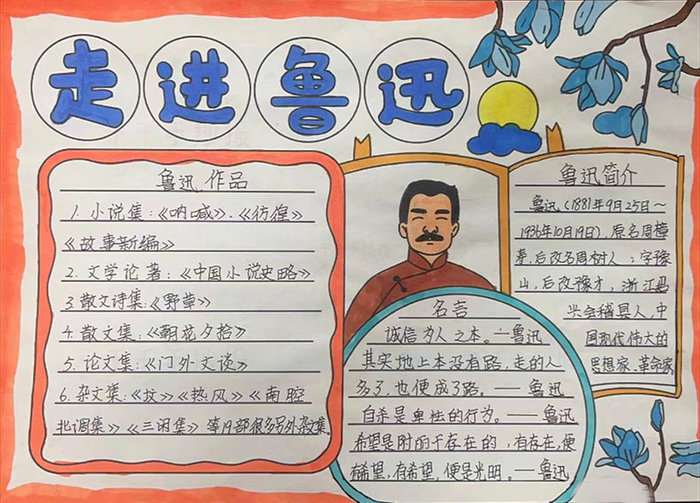 走进鲁迅
鲁迅作品
1. 小说集:《呐喊》、《彷徨》
《故事新编》
2. 文学论著:《中国小说史略》
3 散文诗集:《野草》
4. 散文集:《朝花夕拾》
5. 论文集:《门外文谈》
6. 杂文集:《坟》《热风》《南腔
北调集》《三闲集》等19部很多另外杂集
鲁迅简介
鲁迅(1881年9月25日~
1936年10月19日),原名周樟
寿,后改名周树人;字豫
山,后改豫才,浙江
兴会稽县人,中
国现代伟大的
思想家、革命家
名言
诚信为人之本。—鲁迅
其实地上本没有路,走的人
多了,也便成了路。——鲁迅
自杀是卑怯的行为。——鲁迅
希望是附丽于存在的,有存在,便
有希望,有希望,便是光明。—鲁迅